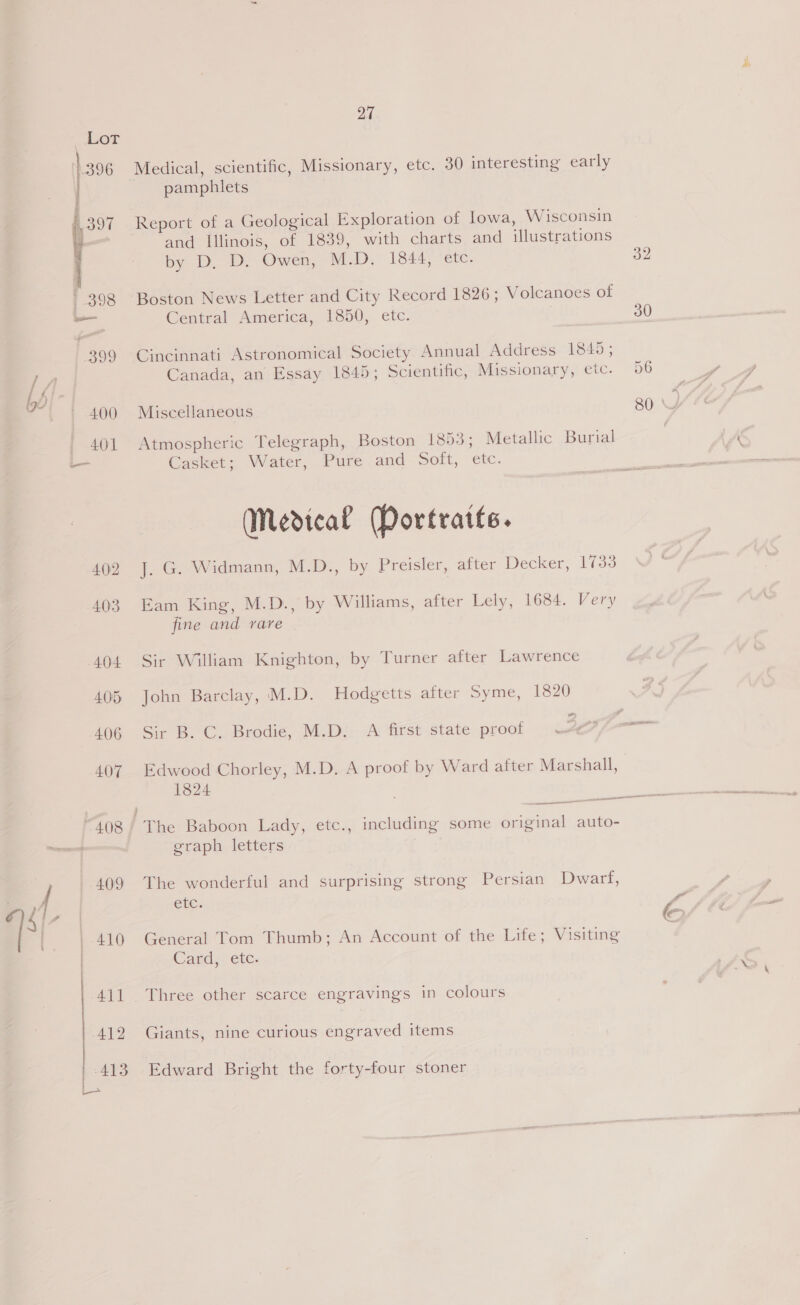 27
LOT
396 Medical, scientific, Missionary, etc. 30 interesting early
pamphlets
397 Report of a Geological Exploration of Iowa, Wisconsin
and Illinois, of 1839, with charts and illustrations
by D. D. Owen, M.D. 1844, etc. 32
398 Boston News Letter and City Record 1826; Volcanoes of
Central America, 1850, etc. 30
399 Cincinnati Astronomical Society Annual Address 1845;
Canada, an Essay 1845; Scientific, Missionary, etc. 56
400 Miscellaneous 80
401 Atmospheric Telegraph, Boston 1853; Metallic Burial
Casket; Water, Pure and Soft, etc.
Medical Portraits.
402 J. G. Widmann, M.D., by Preisler, after Decker, 1733
403 Eam King, M.D., by Williams, after Lely, 1684. Very
fine and rare
404 Sir William Knighton, by Turner after Lawrence
405 John Barclay, M.D. Hodgetts after Syme, 1820
406 Sir B. C. Brodie, M.D. A first state proof
407 Edwood Chorley, M.D. A proof by Ward after Marshall,
1824
408 The Baboon Lady, etc., including some original auto-
graph letters
409 The wonderful and surprising strong Persian Dwarf,
etc.
410 General Tom Thumb; An Account of the Life; Visiting
Card, etc.
411 Three other scarce engravings in colours
412 Giants, nine curious engraved items
413 Edward Bright the forty-four stoner